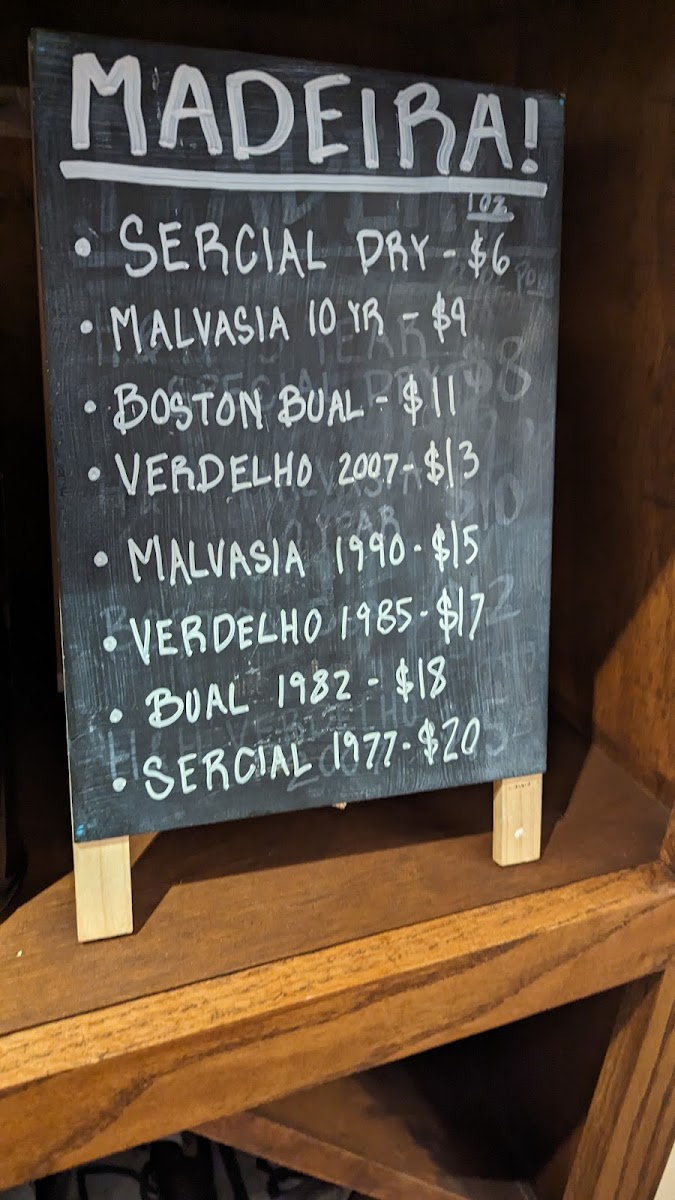 MADEIRA!
1 oz
• SERCIAL DRY - $6
• MALVASIA 10 YR - $9
• BOSTON BUAL - $11
• VERDELHO 2007 - $13
• MALVASIA 1990 - $15
• VERDELHO 1985 - $17
• BUAL 1982 - $18
• SERCIAL 1977 - $20